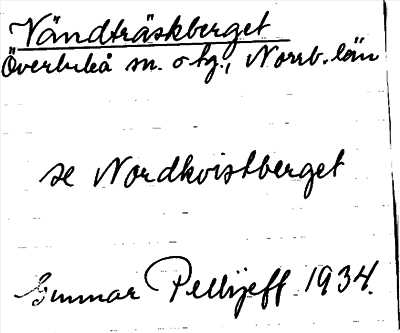 Vändträskberget
Överluleå sn. o tg., Norrb. län
se Nordkvistberget
Gunnar Pellijeff 1934.